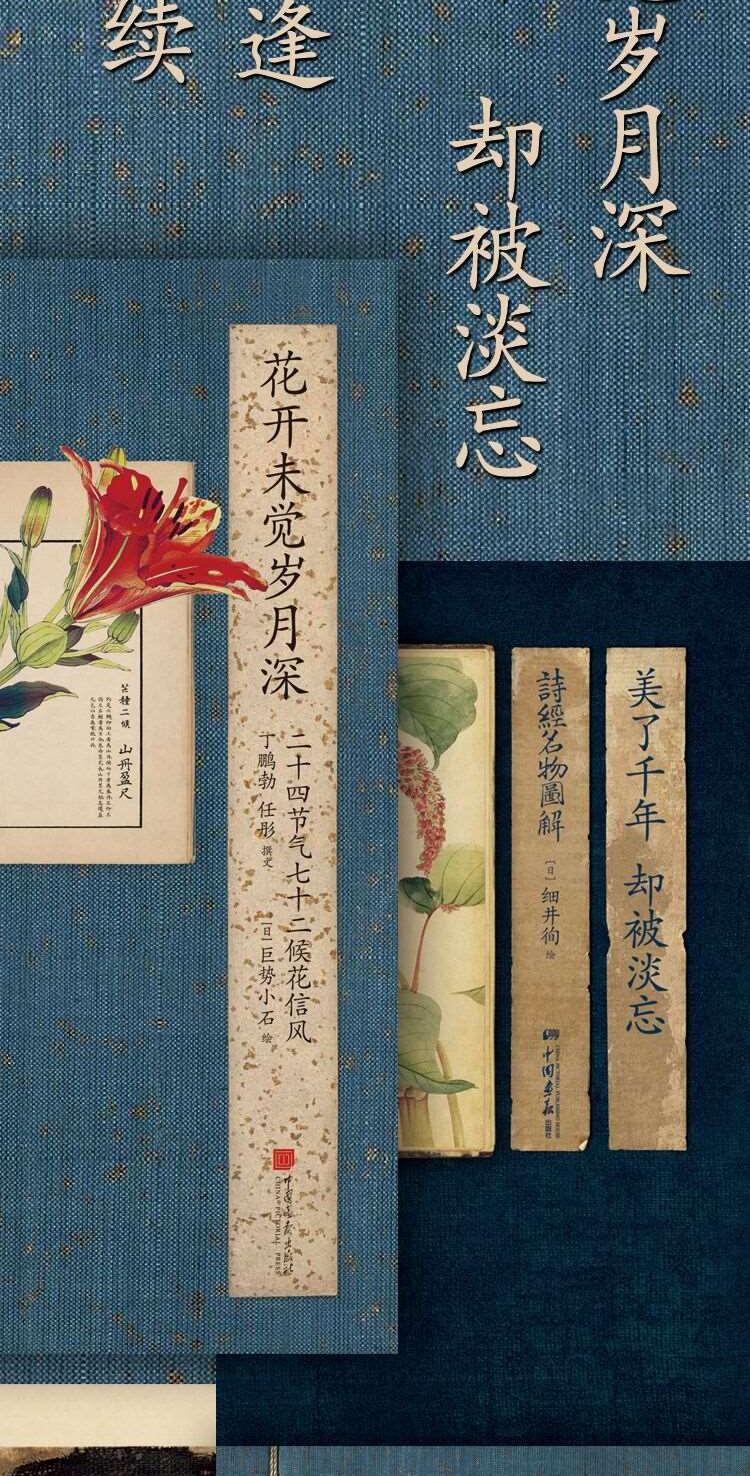 岁月深
却被淡忘
逢
续
花开未觉岁月深
二十四节气七十二候花信风
丁鹏勃 任彤 撰文
[日]巨势小石 绘
CHINA PICTORIAL PRESS
芒種二候 山丹盈尺
美了千年 却被淡忘
詩經名物圖解
[日] 细井徇 绘
中国画报
出版社